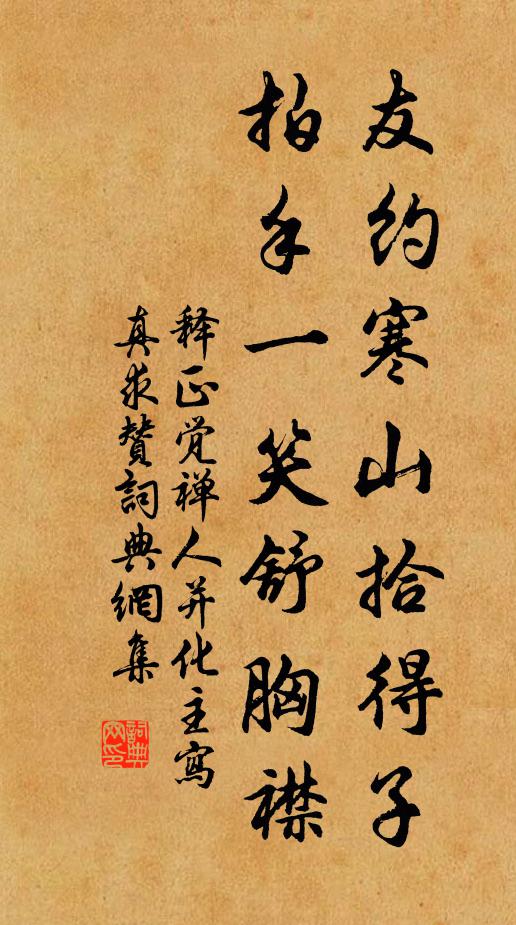 友约寒山拾得子
拍手一笑舒胸襟
释正觉禅人并化主写
真求赞词典网集
词典网印